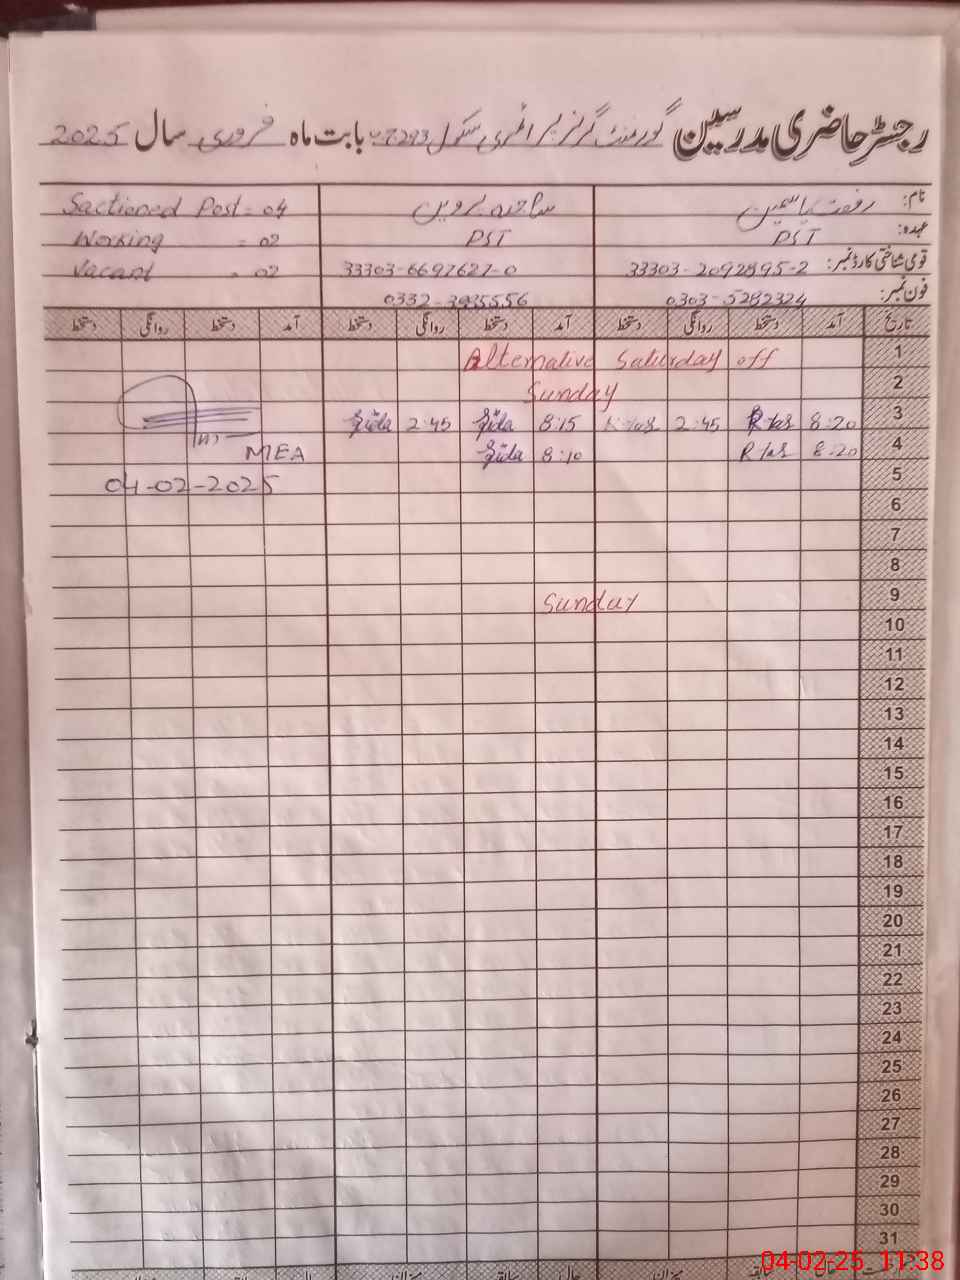 رجسٹر حاضری مدرسین گورنمنٹ گرلز پرائمری سکول بابت ماہ فروری سال 2025
نام: رفعت یاسمین ساجدہ پروین Sactioned Post = 04
عہدہ: PST PST Working = 02
قومی شناختی کارڈ نمبر: 33303-2092895-2 33303-6697627-0 Vacant = 02
فون نمبر: 0303-5282324 0332-3935556
تاریخ آمد دستخط روانگی دستخط آمد دستخط روانگی دستخط آمد دستخط روانگی دستخط
1 Alternative Saturday off
2 Sunday
3 8:20 2:45 8:15 2:45
4 8:20 8:10 MEA
5 04-02-2025
6
7
8
9 Sunday
10
11
12
13
14
15
16
17
18
19
20
21
22
23
24
25
26
27
28
29
30
31
04-02-25 11:38